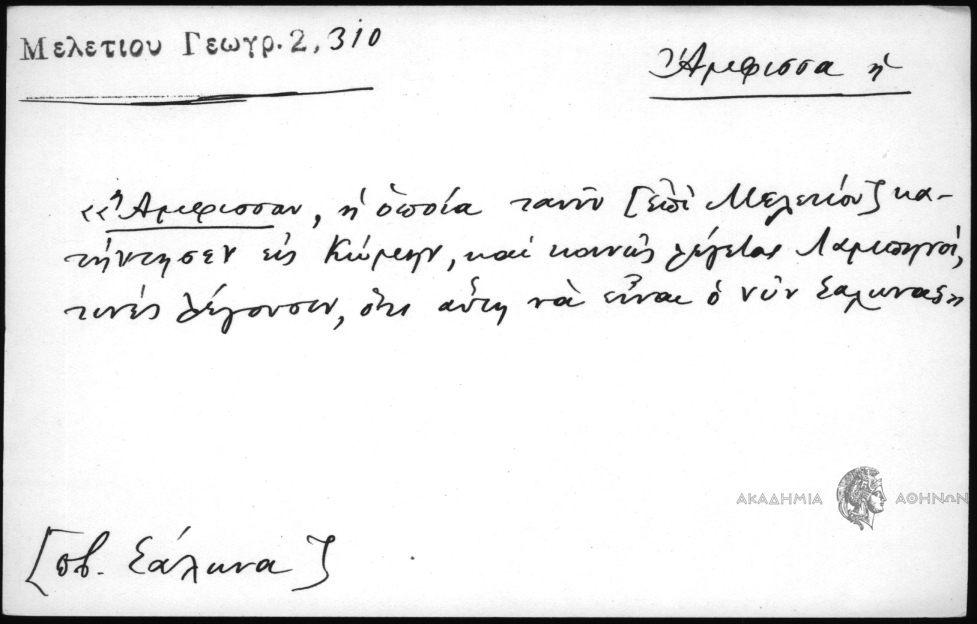 Μελετίου Γεωγρ. 2, 310
Ἄμφισσα ἡ
«Ἄμφισσαν, ἡ ὁποία τανῦν [ἐπὶ Μελετίου] κα-
τήντησεν εἰς Κώμην, καὶ κοινῶς λέγεται Λαμπηνοί,
τινές λέγουσιν, ὅτι αὕτη νὰ εἶναι ὁ νῦν Σάλωνας»
ΑΚΑΔΗΜΙΑ ΑΘΗΝΩΝ
[πβ. Σάλωνα]